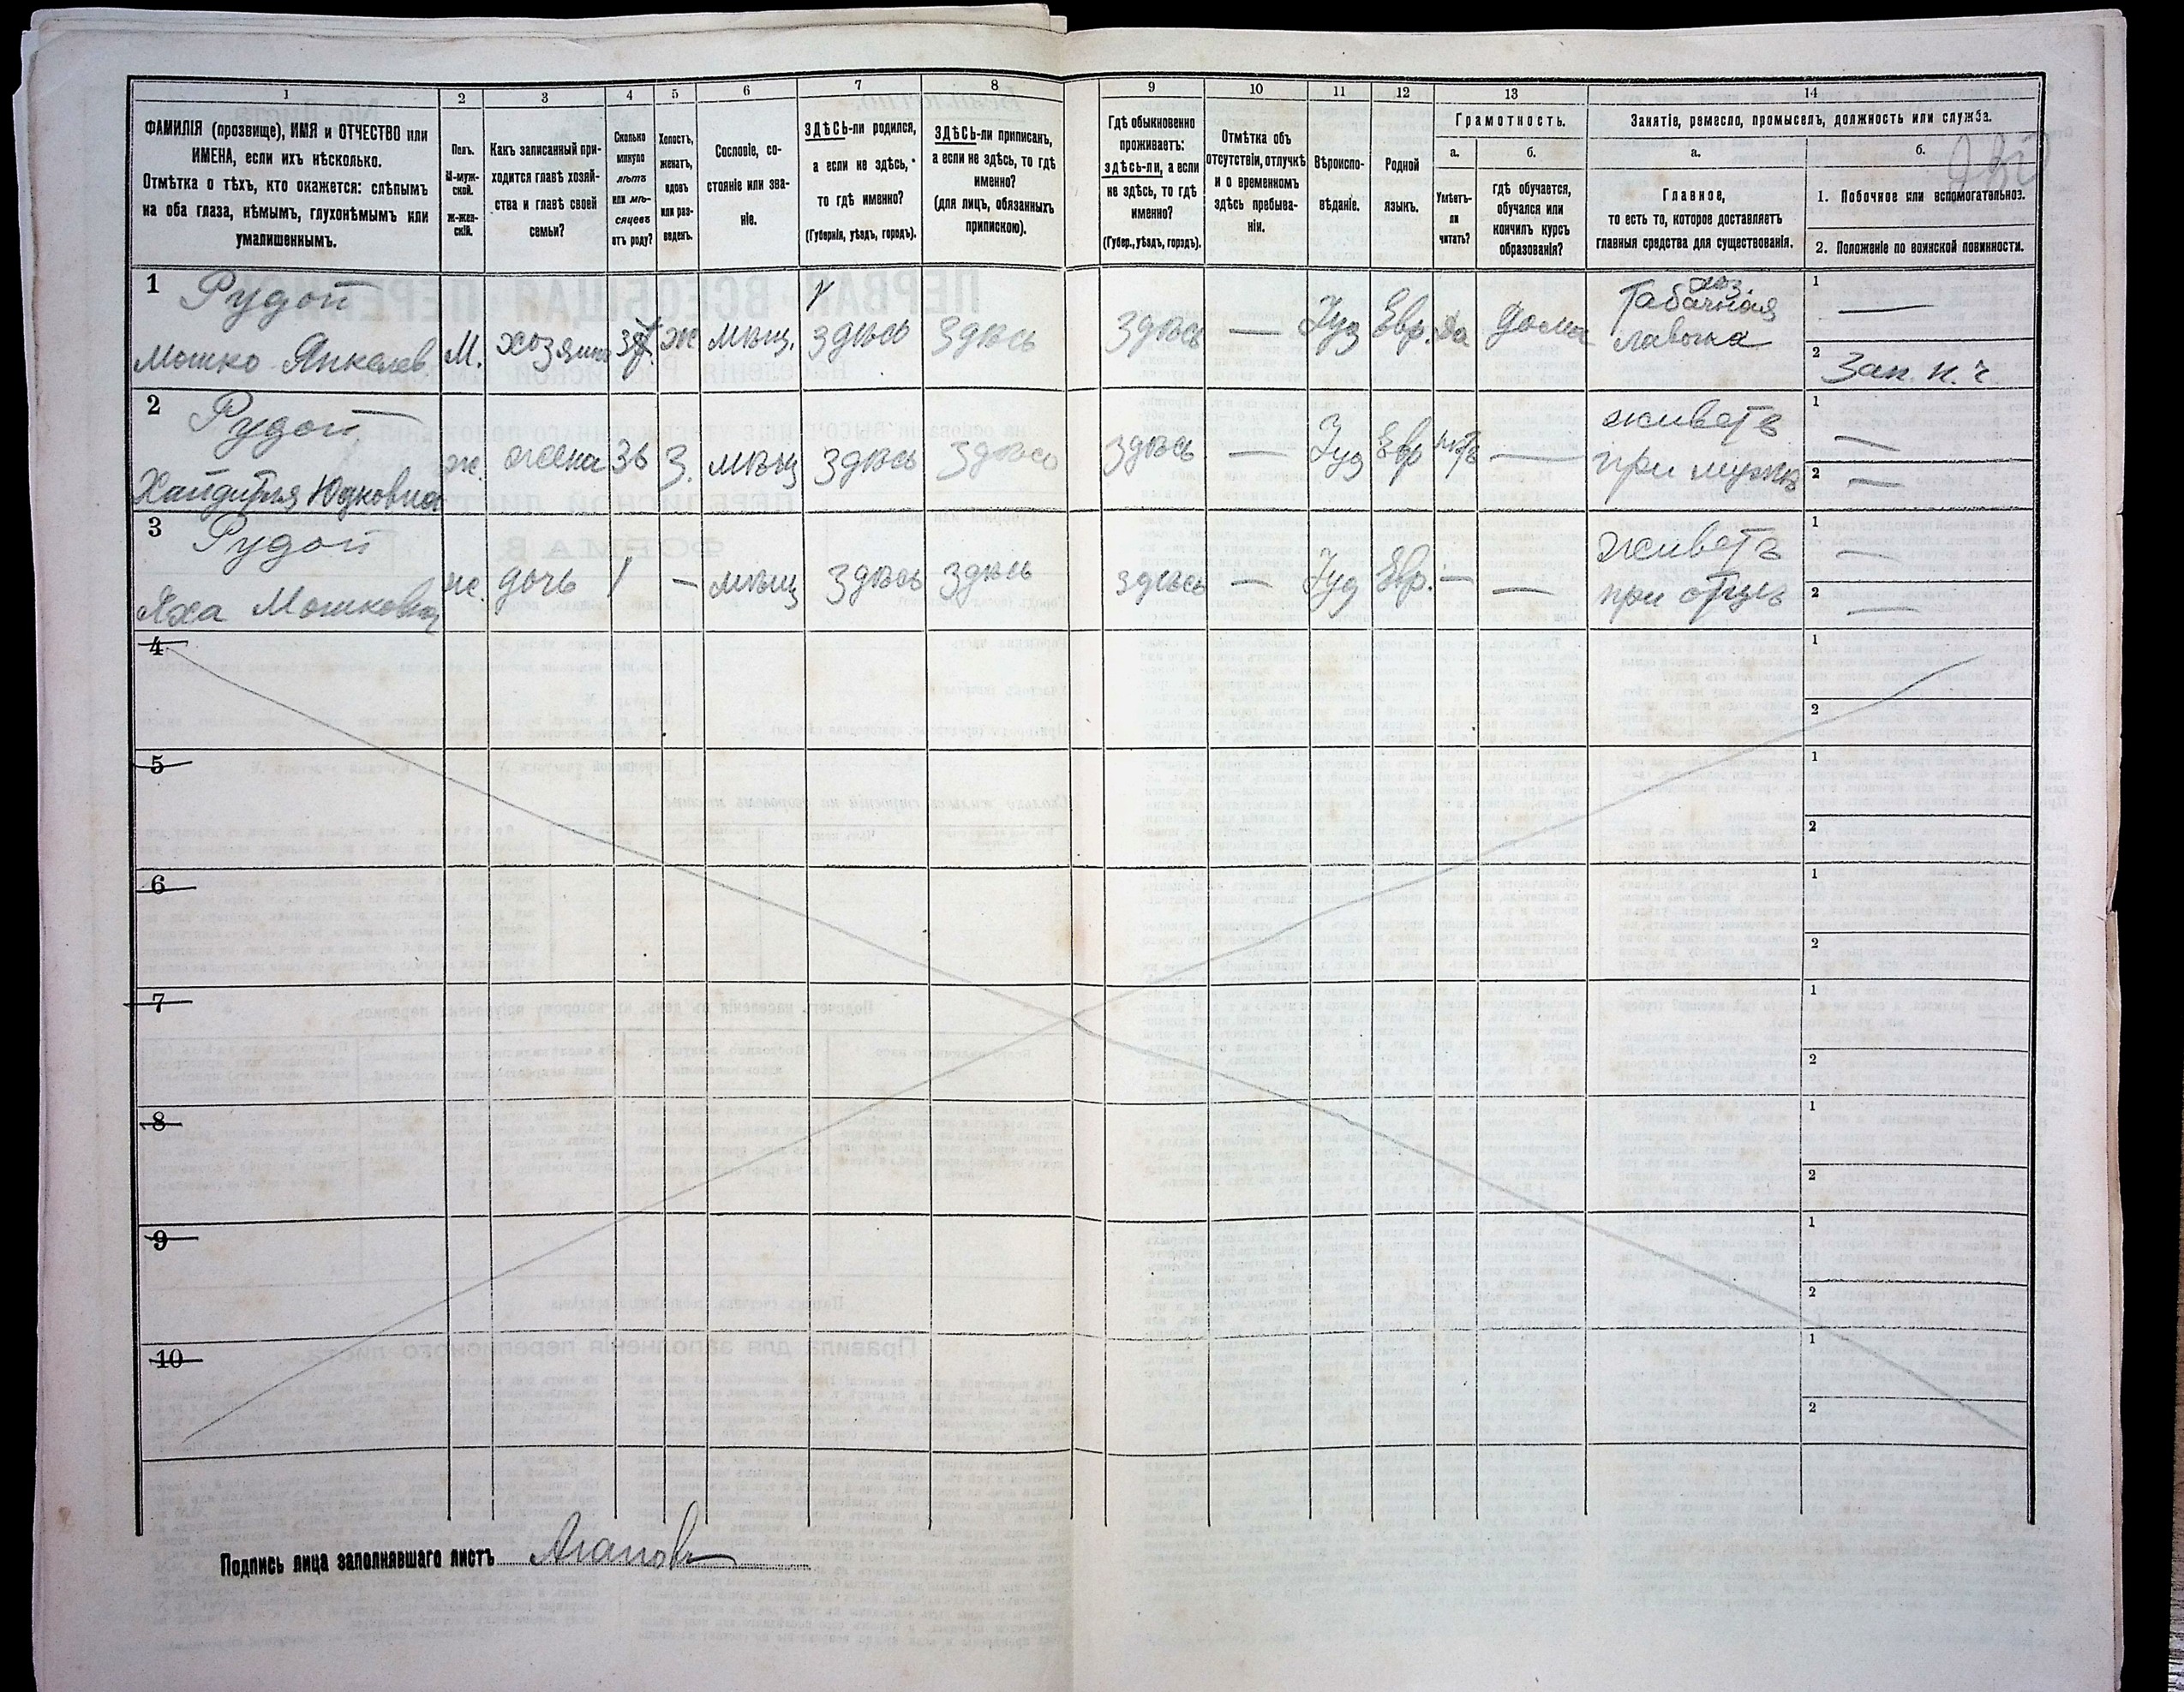 1 2 3 4 5 6 7 8 9 10 11 12 13 14
ФАМИЛІЯ (прозвище), ИМЯ и ОТЧЕСТВО или
ИМЕНА, если ихъ нѣсколько.
Отмѣтка о тѣхъ, кто окажется: слѣпымъ
на оба глаза, нѣмымъ, глухонѣмымъ или
умалишеннымъ.
Полъ.
М-муж-
ской.
Ж-жен-
скій.
Какъ записанный при-
ходится главѣ хозяй-
ства и главѣ своей
семьи?
Сколько
минуло
лѣтъ
или мѣ-
сяцевъ
отъ роду?
Холостъ,
женатъ,
вдовъ
или раз-
веденъ.
Сословіе, со-
стояніе или зва-
ніе.
ЗДѢСЬ-ли родился,
а если не здѣсь,
то гдѣ именно?
(Губернія, уѣздъ, городъ).
ЗДѢСЬ-ли приписанъ,
а если не здѣсь, то гдѣ
именно?
(для лицъ, обязанныхъ
припискою).
Гдѣ обыкновенно
проживаетъ:
здѣсь-ли, а если
не здѣсь, то гдѣ
именно?
(Губер., уѣздъ, городъ).
Отмѣтка объ
отсутствіи, отлучкѣ
и о временномъ
здѣсь пребыва-
ніи.
Вѣроиспо-
вѣданіе.
Родной
языкъ.
Грамотность.
а.
Умѣетъ-
ли
читать?
б.
гдѣ обучается,
обучался или
кончилъ курсъ
образованія?
Занятіе, ремесло, промыселъ, должность или служба.
а.
Главное,
то есть то, которое доставляетъ
главныя средства для существованія.
б.
1. Побочное или вспомогательное.
2. Положеніе по воинской повинности.
1 Рудой
Мошко Янкелев. М. хозяинъ ж мѣщ. здѣсь здѣсь здѣсь — Іуд Евр. да дома
хоз.
Табачная
лавочка
1 —
2 Зап. н. ч.
2 Рудой
ж. жена 36 З. мѣщ здѣсь здѣсь здѣсь — Іуд Евр нѣтъ —
Юдковна
живетъ
при мужѣ
1 —
2 —
3 Рудой
Яха Мошковна ж. дочь 1 — мѣщ здѣсь здѣсь здѣсь — Іуд Евр. — —
живетъ
при отцѣ
1 —
2 —
4 1
2
5 1
2
6 1
2
7 1
2
8 1
2
9 1
2
10 1
2
Подпись лица заполнявшаго листъ Агаповъ